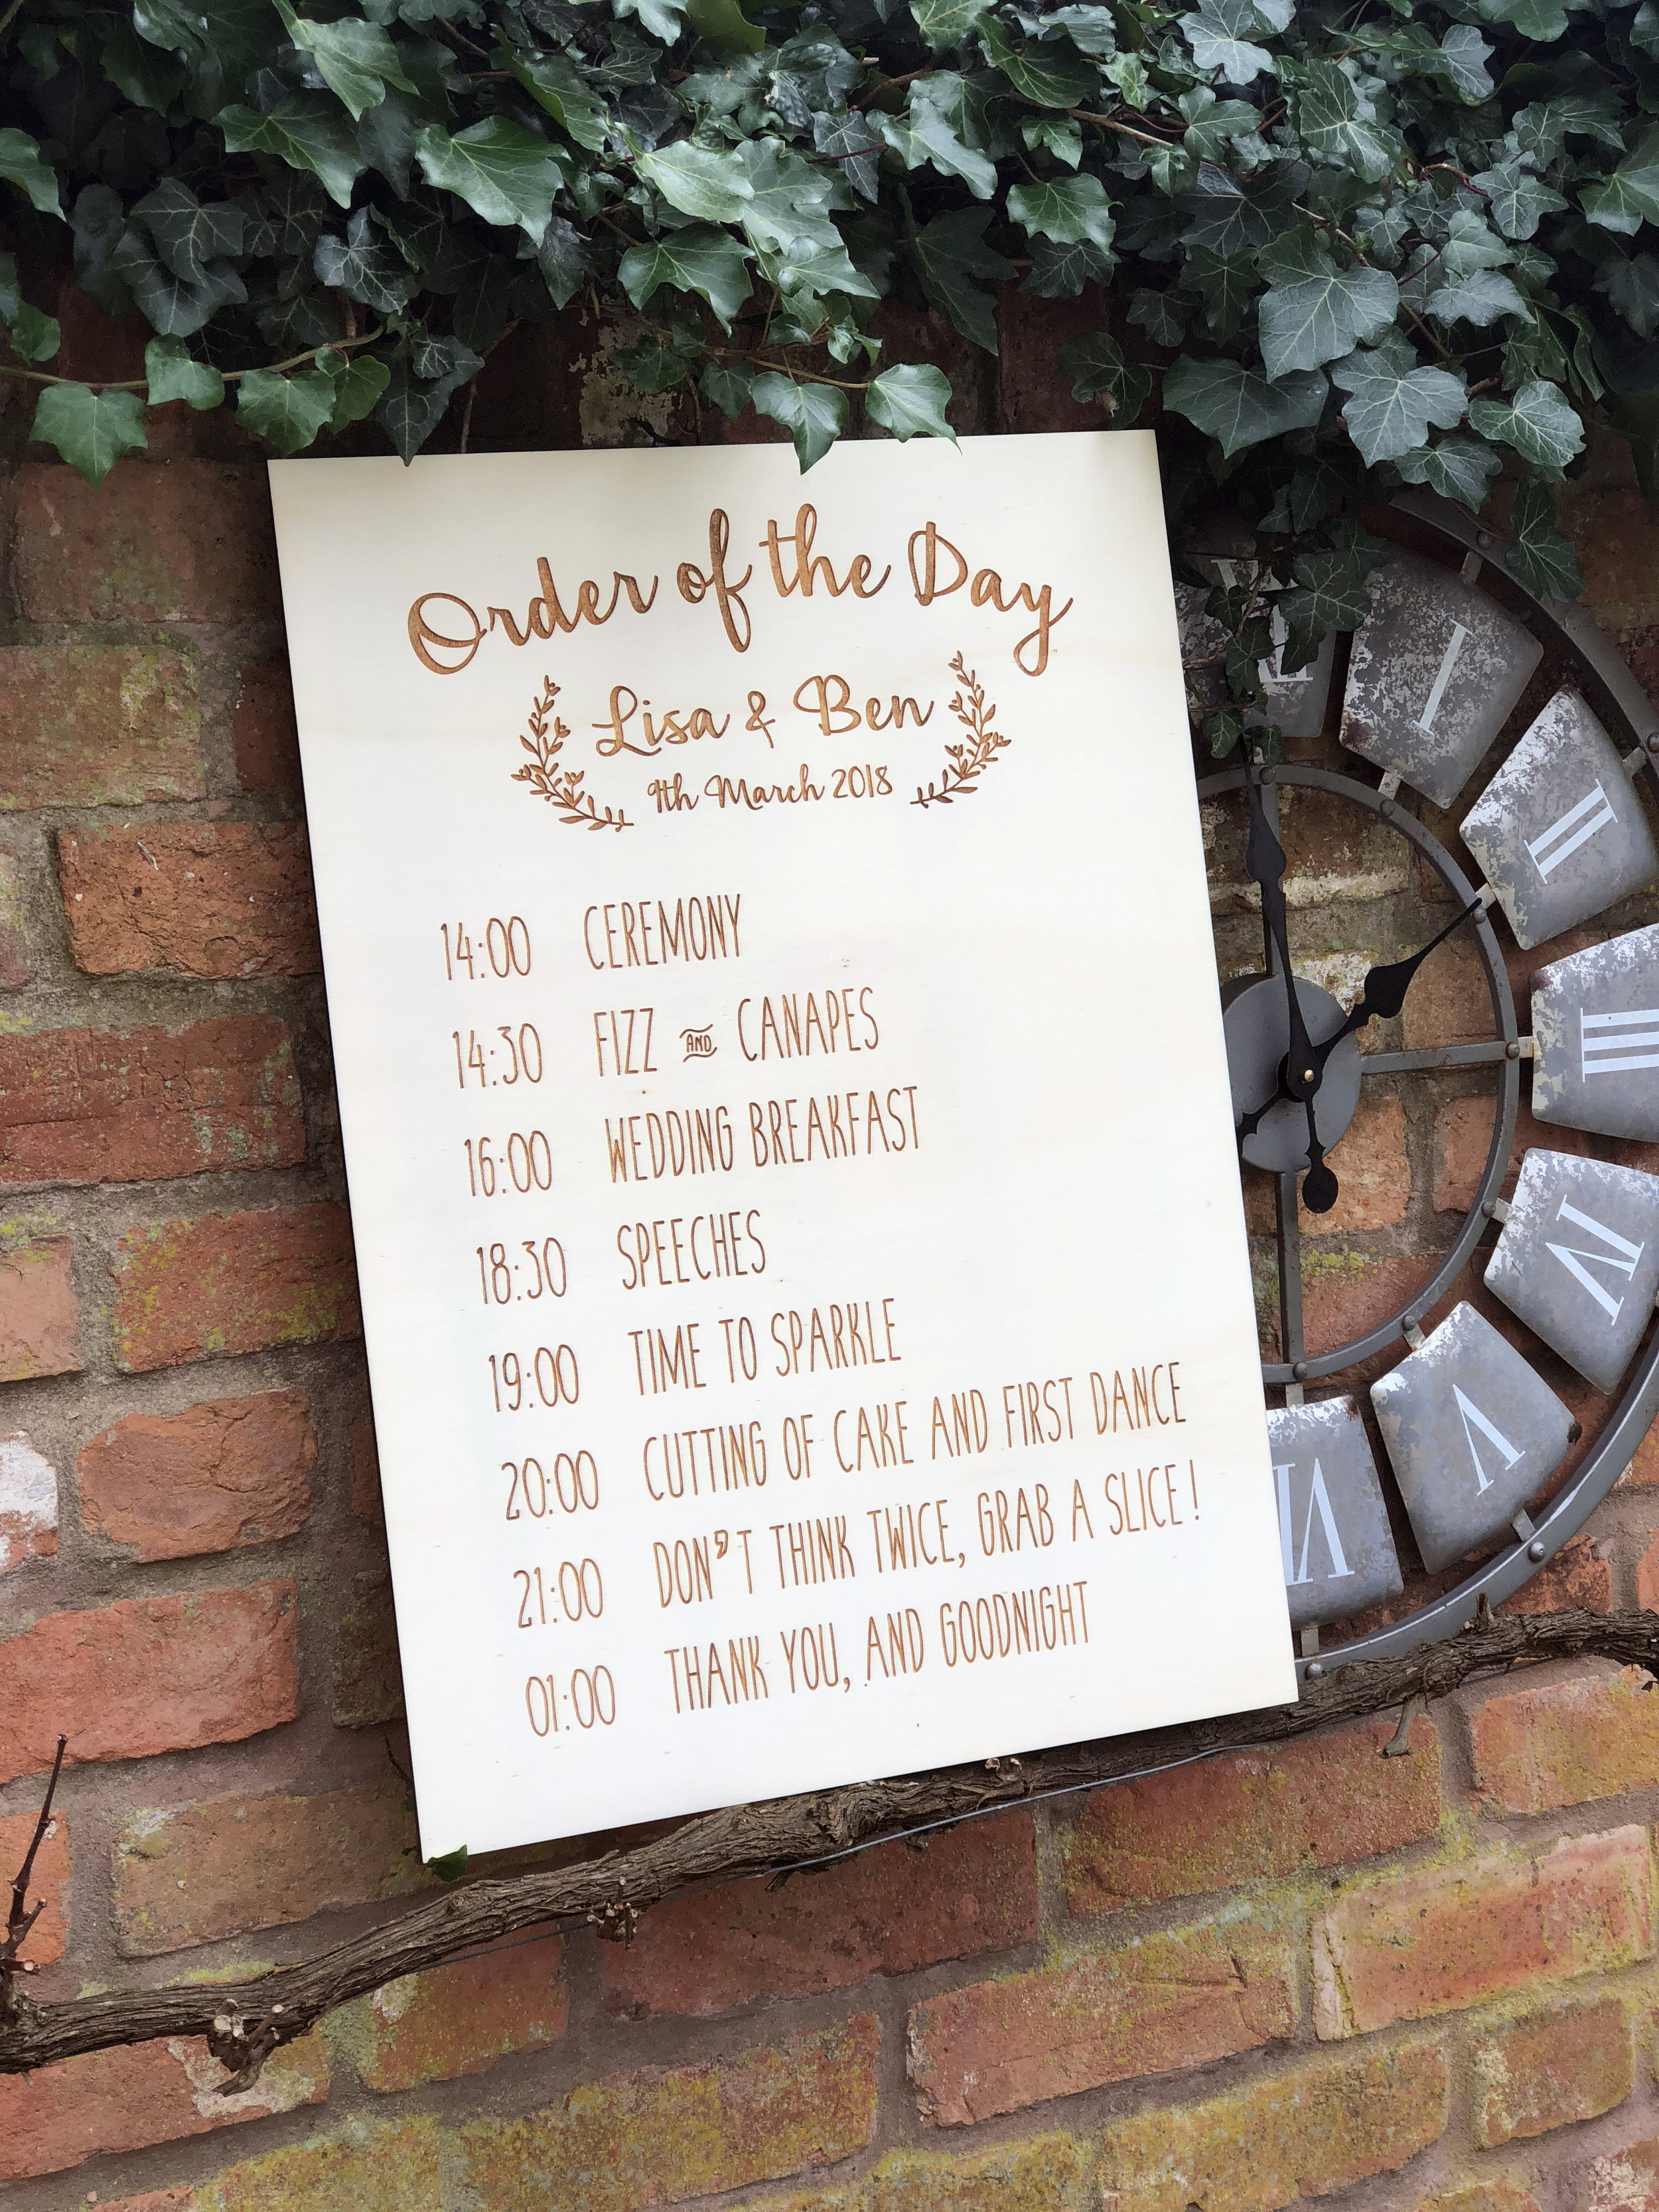 Order of the Day
Lisa & Ben
9th March 2018
14:00 CEREMONY
14:30 FIZZ AND CANAPES
16:00 WEDDING BREAKFAST
18:30 SPEECHES
19:00 TIME TO SPARKLE
20:00 CUTTING OF CAKE AND FIRST DANCE
21:00 DON'T THINK TWICE, GRAB A SLICE!
01:00 THANK YOU, AND GOODNIGHT
I
II
III
IV
V
VI